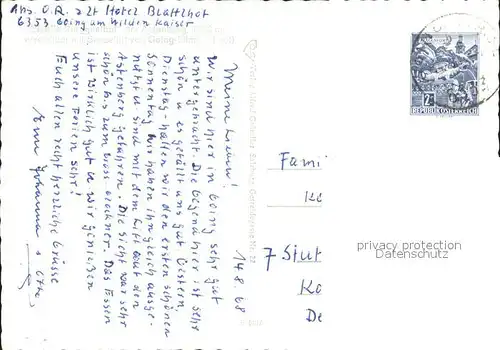 Abs. O.R. z Zt Hotel Blattlhof
6353 Going am Wilden Kaiser
14.8.68
Meine Lieben!
Wir sind hier in Going sehr gut
untergebracht. Die Gegend hier ist sehr
schön u es gefällt uns gut. Gestern
Dienstag hatten wir den ersten schönen
Sonnentag. Wir haben ihn gleich ausge-
nützt u sind mit dem Lift auf den
Astenberg gefahren. Die Sicht war sehr
schön bis zum Gross Glockner. Das Essen
ist wirklich gut u wir genießen
unsere Ferien sehr!
Euch allen recht herzliche Grüsse
Eure Johanna u Otto
Fami
7 Stut
De
2 S
REPUBLIK ÖSTERREICH
privacy protection
Datenschutz